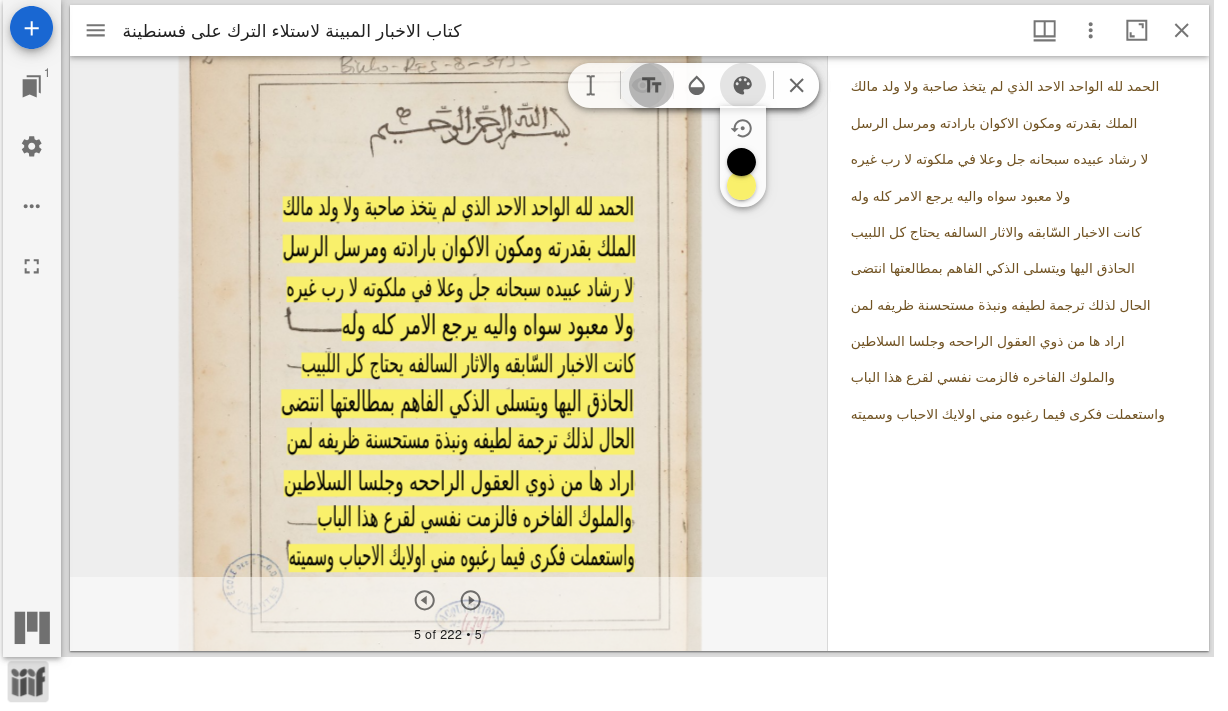 كتاب الاخبار المبينة لاستلاء الترك على فسنطينة
1
بسم الله الرحمن الرحيم
الحمد لله الواحد الاحد الذي لم يتخذ صاحبة ولا ولد مالك
الملك بقدرته ومكون الاكوان بارادته ومرسل الرسل
لا رشاد عبيده سبحانه جل وعلا في ملكوته لا رب غيره
ولا معبود سواه واليه يرجع الامر كله وله
كانت الاخبار السّابقه والاثار السالفه يحتاج كل اللبيب
الحاذق اليها ويتسلى الذكي الفاهم بمطالعتها انتضى
الحال لذلك ترجمة لطيفه ونبذة مستحسنة ظريفه لمن
اراد ها من ذوي العقول الراححه وجلسا السلاطين
والملوك الفاخره فالزمت نفسي لقرع هذا الباب
واستعملت فكرى فيما رغبوه مني اولايك الاحباب وسميته
5 of 222 • 5
الحمد لله الواحد الاحد الذي لم يتخذ صاحبة ولا ولد مالك
الملك بقدرته ومكون الاكوان بارادته ومرسل الرسل
لا رشاد عبيده سبحانه جل وعلا في ملكوته لا رب غيره
ولا معبود سواه واليه يرجع الامر كله وله
كانت الاخبار السّابقه والاثار السالفه يحتاج كل اللبيب
الحاذق اليها ويتسلى الذكي الفاهم بمطالعتها انتضى
الحال لذلك ترجمة لطيفه ونبذة مستحسنة ظريفه لمن
اراد ها من ذوي العقول الراححه وجلسا السلاطين
والملوك الفاخره فالزمت نفسي لقرع هذا الباب
واستعملت فكرى فيما رغبوه مني اولايك الاحباب وسميته
iiif